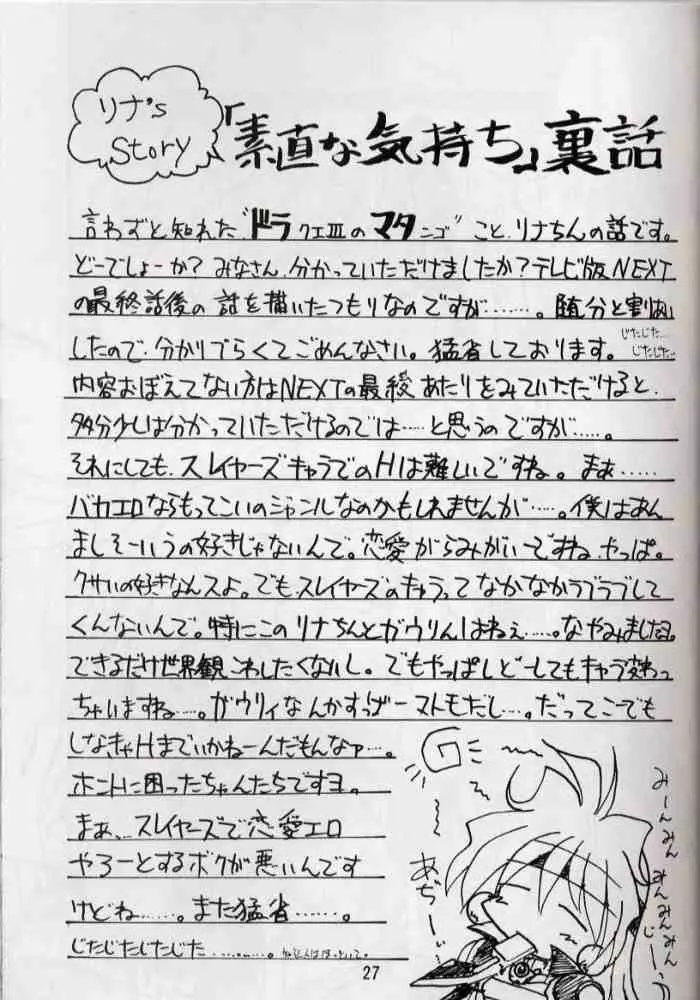 リナ's
Story
「素直な気持ち」裏話
言わずと知れた"ドラクエⅢのマタンゴ"こと、リナちんの話です。
どーでしょーか？みなさん、分かっていただけましたか？テレビ版NEXT
の最終話後の話を描いたつもりなのですが……。随分と割愛
したので、分かりづらくてごめんなさい。猛省しております。
じたじた…
じたじた…
内容おぼえてない方はNEXTの最終あたりをみていただけると、
多分少しは分かっていただけるのでは…と思うのですが……。
それにしても、スレイヤーズキャラでのHは難しいですね。まぁ……
バカエロならもってこいのジャンルなのかもしれませんが……。僕はあん
ましそーいうの好きじゃないんで。恋愛がらみがいーですね、やっぱ。
クサいの好きなんスよ。でもスレイヤーズのキャラってなかなかラブラブして
くんないんで。特にこのリナちんとガウりんはねぇ……。なやみましたョ。
できるだけ世界観こわしたくないし。でもやっぱしどーしてもキャラ変わっ
ちゃいますね……。ガウリィなんかすっげーマトモだし…。だってこーでも
しなきゃHまでいかねーんだもんなァ…。
ホントに困ったちゃんたちですヨ。
まぁ、スレイヤーズで恋愛エロ
やろーとするボクが悪いんです
けどね……。また猛省……。
じたじたじたじた………。
あぢーーい
みーんみん
みんみんみん
じーーっ
27